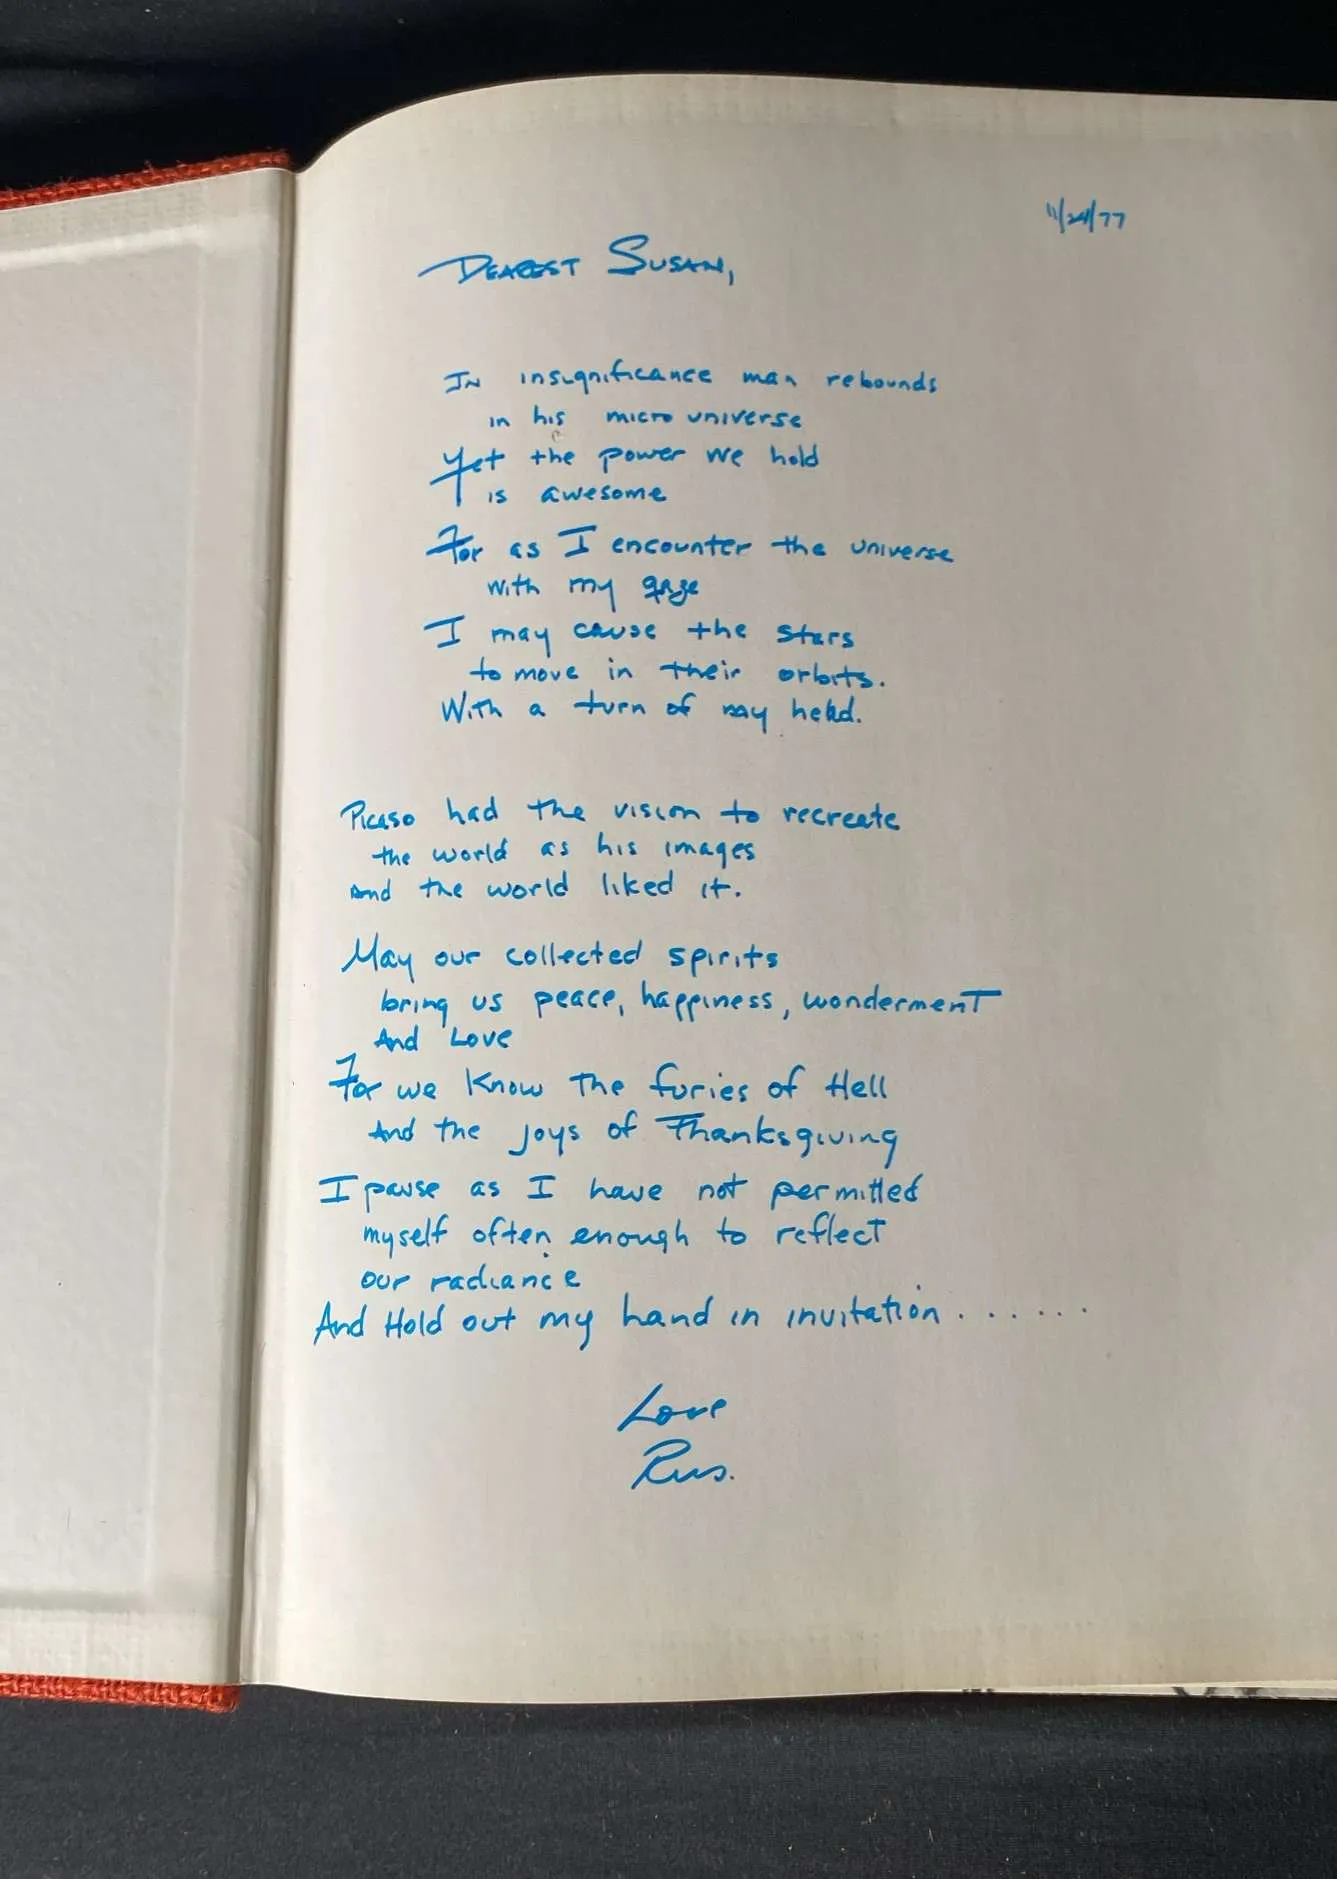 11/24/77
DEAREST SUSAN,
IN insignificance man rebounds
in his micro universe
Yet the power we hold
is awesome
For as I encounter the universe
with my gaze
I may cause the stars
to move in their orbits.
With a turn of my head.
Picaso had the vision to recreate
the world as his images
And the world liked it.
May our collected spirits
bring us peace, happiness, wonderment
And Love
For we Know The furies of Hell
And the joys of Thanksgiving
I pause as I have not permitted
myself often enough to reflect
our radiance
And Hold out my hand in invitation . . . . . .
Love
Rus.